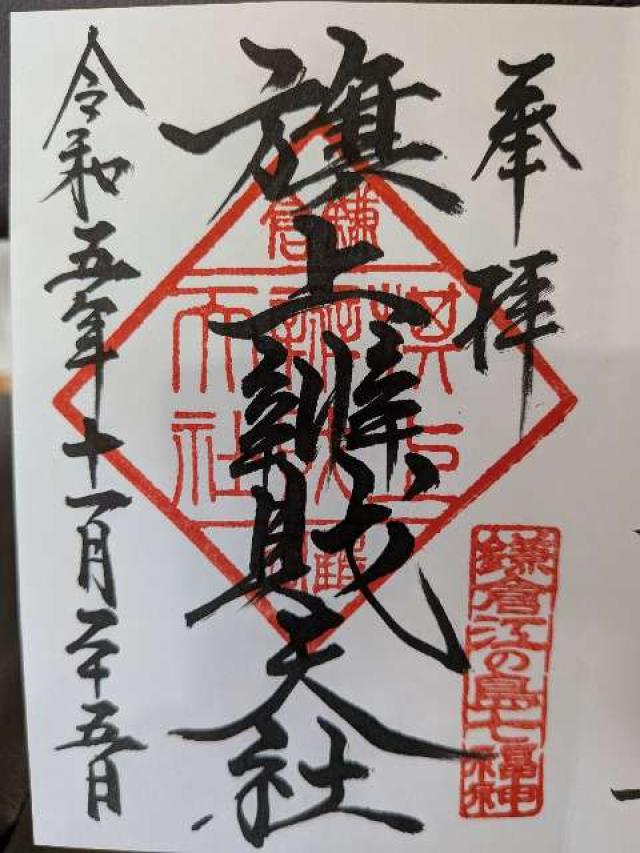 奉拝
旗上辨財天社
鎌倉江の島七福神
令和五年十一月二十五日